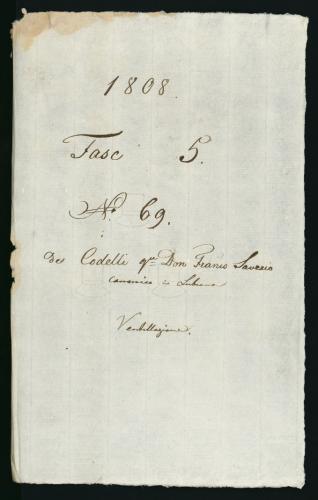 1808.
Fasc 5.
N.º 69.
de Codelli q.m Don Franco Saverio
canonico in Lubiana
Ventillazione.